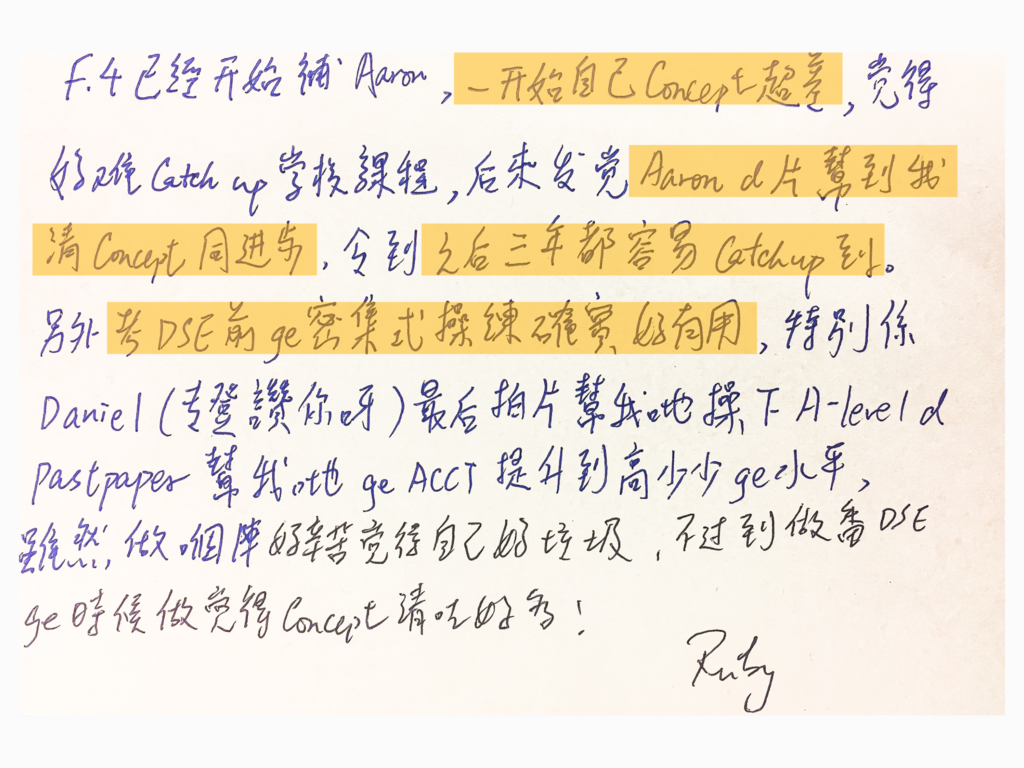 F.4已經开始補Aaron,一开始自己Concept超差,觉得
好难Catch up学校課程,后来发觉Aaron d片幫到我
清Concept同进步,令到之后三年都容易Catch up到。
另外考DSE前ge密集式操練確實好有用,特別係
Daniel(专登讚你呀)最后拍片幫我哋操下A-level d
Pastpaper幫我哋ge ACCT提升到高少少ge水平,
雖然做嗰陣好辛苦觉得自己好垃圾,不过到做番DSE
ge時候做觉得Concept清咗好多!
Ruby